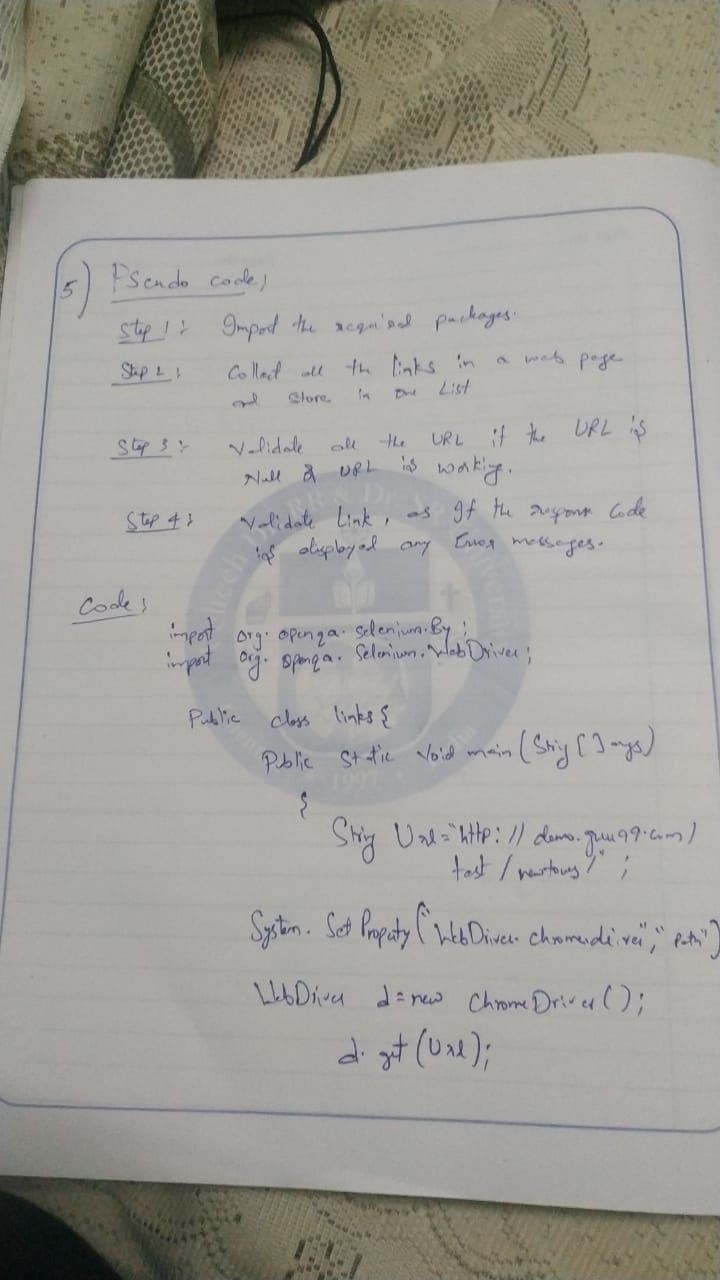 5) Pseudo code;
Step 1: Import the required packages.
Step 2: Collect all the links in a web page
and store in one List
Step 3: Validate all the URL if the URL is
Null & URL is working.
Step 4: Validate Link, as If the response Code
is displayed any Error messages.
Code:
import org.openqa.selenium.By;
import org.openqa.Selenium.WebDriver;
Public class links {
Public Static Void main (String [] args)
{
String Url="http://demo.guru99.com/
test/newtours/";
System. Set Property ("WebDriver. chromedriver", "Path")
WebDriver d = new ChromeDriver();
d. get (Url);
1997